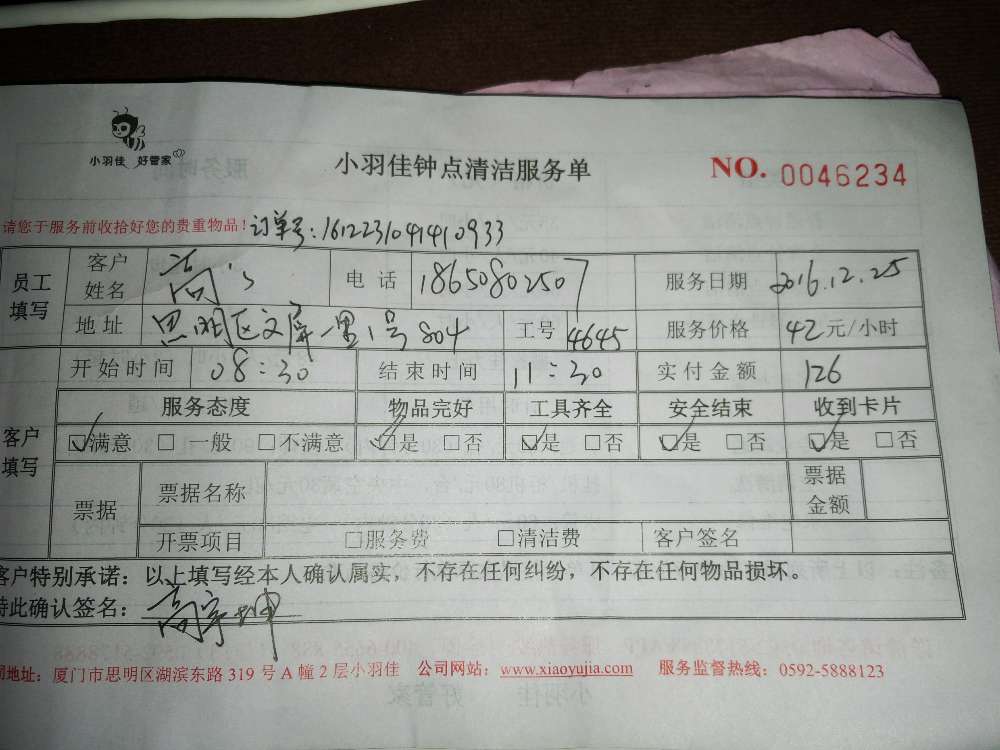 小羽佳 好管家
小羽佳钟点清洁服务单
NO. 0046234
请您于服务前收拾好您的贵重物品! 订单号:1612231041410933
员工填写 客户姓名 高 电话 18650802507 服务日期 2016.12.25
地址 思明区文屏一里1号804 工号 4645 服务价格 42元/小时
客户填写 开始时间 08:30 结束时间 11:30 实付金额 126
服务态度 物品完好 工具齐全 安全结束 收到卡片
☑满意 □一般 □不满意 ☑是 □否 ☑是 □否 ☑是 □否 ☑是 □否
票据 票据名称 票据金额
开票项目 □服务费 □清洁费 客户签名
客户特别承诺:以上填写经本人确认属实,不存在任何纠纷,不存在任何物品损坏。
特此确认签名:高宇坤
司地址:厦门市思明区湖滨东路 319 号 A 幢 2 层小羽佳 公司网站:www.xiaoyujia.com 服务监督热线:0592-5888123